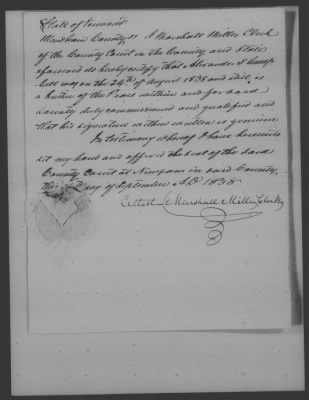 State of Vermont
Windham County, ss I Marshall Miller Clerk
of the County Court in the County, and State
aforesaid do hereby certify that Alexander Camp-
bell was on the 24th of August 1838 and still is
a Justice of the Peace within and for said
County duly commissioned and qualified and
that his signature within written is genuine
In testimony whereof I have hereunto
set my hand and affixed the seal of the said
County Court at Newfane in said County,
this day of September A.D. 1838
Attest Marshall Miller Clerk